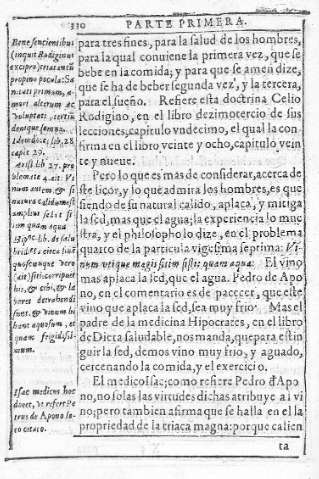 330 PARTE PRIMERA.
para tres fines, para la salud de los hombres,
para la qual conuiene la primera vez, que se
bebe en la comida; y para que se amen dize,
que se ha de beber segunda vez, y la tercera,
para el sueño. Refiere esta doctrina Celio
Rodigino, en el libro dezimotercio de sus
lecciones, capitulo vndecimo, el qual la con-
firma en el libro veinte y ocho, capitulo vein
te y nueue.
Pero lo que es mas de considerar, acerca de
ste licor, y lo que admira los hombres, es que
siendo de su natural calido, aplaca, y mitiga
la sed, mas que el agua; la experiencia lo mue
stra, y el philosopho lo dize, en el problema
quarto de la particula vigesima septima: Vi-
num vtique magis sitim sistit quam aqua. El vino
mas aplaca la sed, que el agua. Pedro de Apo
no, en el comentario es de parecer, que este
vino que aplaca la sed, sea muy frio. Mas el
padre de la medicina Hipocrates, en el libro
de Dieta saludable, nos manda, que para estin
guir la sed, demos vino muy frio, y aguado,
cercenando la comida, y el exercicio.
El medico Isac, como refiere Pedro d'Apo
no, no solas las virtudes dichas atribuye al vi
no; pero tambien afirma que se halla en el la
propriedad de la triaca magna: porque calien
ta
Bene sencientibus
inquit Rodiginus
propino pocula: Sa-
mari alterum ac
voluptati, tertiũ
denique somno.
Idem dose, lib. 28
capit. 29.
Arist. lib. 27. pro
blemate 4. ait. Vi
num autem, & si
natura calidum est
amplius
um quam aqua
Hipp. lib. de salu
funt, & vinum bi
bant aquosum, et
quam frigidissi-
mum.
Isac medicus hoc
docet, vt refert Pe
trus de Apono lo-
co citato.